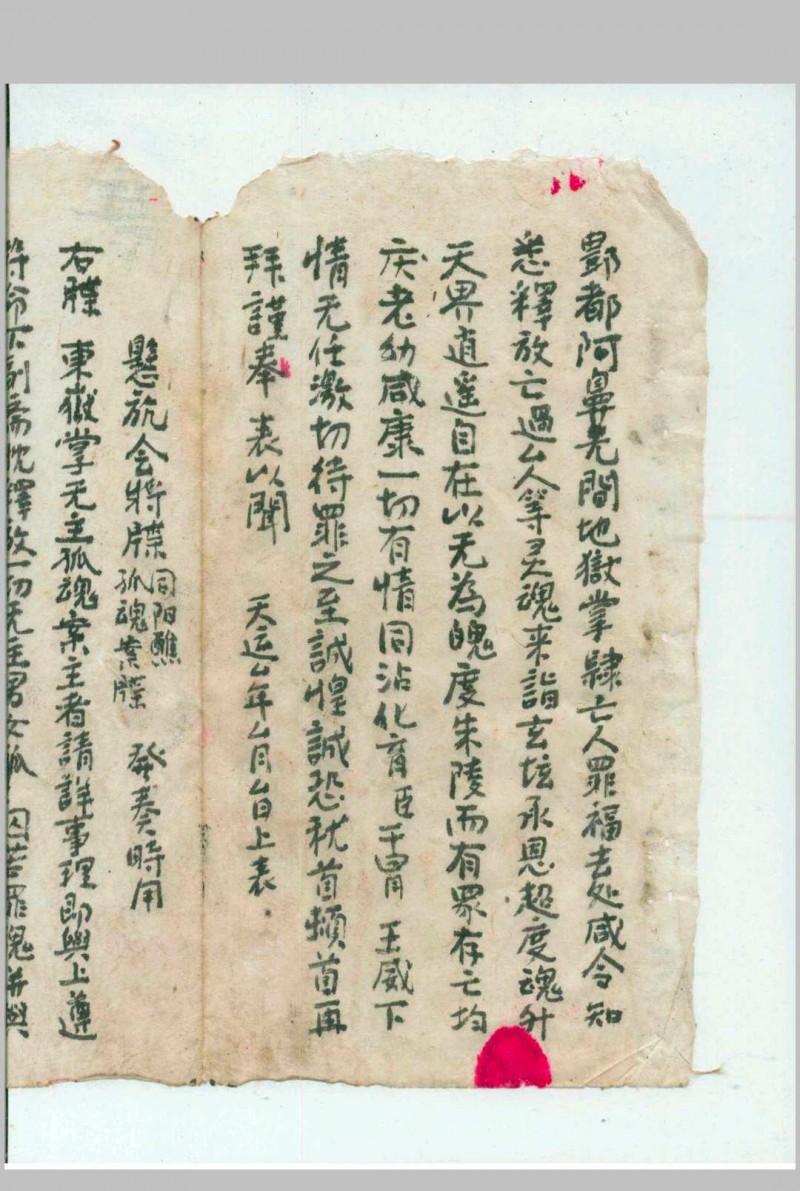 酆都阿鼻无間地獄掌隸亡人罪福去处咸令知
悉釋放亡過厶人等灵魂来詣玄坛承恩超度魂升
天界逍遥自在以无為魄度朱陵而有眾存亡均
庆老幼咸康一切有情同沾化育臣干冐 王威下
情无任激切待罪之至誠惶誠恐稽首頓首再
拜謹奉 表以聞 天运厶年厶月厶日上表
懸旐会将牒 同阳醮 孤魂案牒 發奏時用
右牒 東嶽掌无主孤魂案主者請詳事理即與上遵
符命下 釋放一切无主男女孤 囚苦罪魂并與